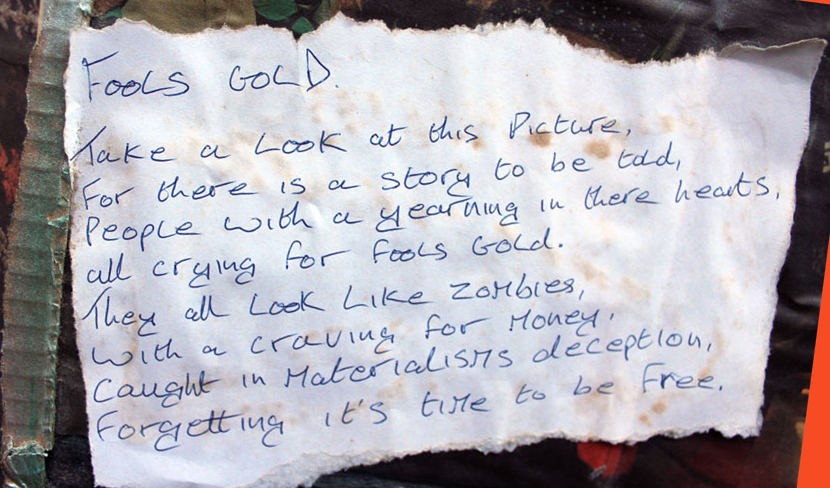 FOOLS GOLD.
Take a Look at this Picture,
For there is a story to be told,
People with a yearning in there hearts,
all crying for fools Gold.
They all Look Like zombies,
with a craving for Money,
Caught in Materialisms deception,
Forgetting it's time to be free.